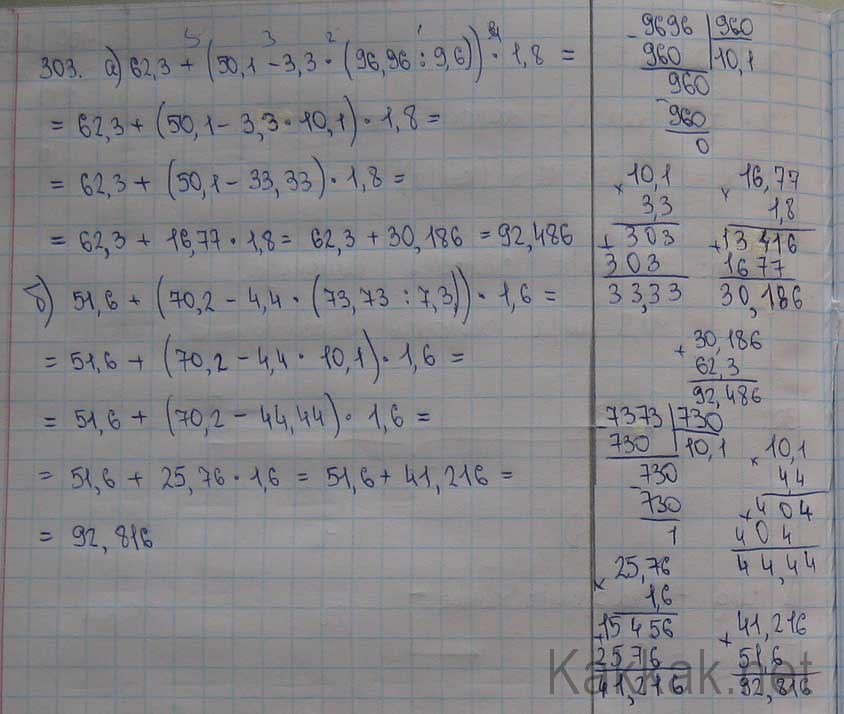 5 3 2 1 4
303. а) 62,3 + (50,1 − 3,3 · (96,96 : 9,6)) · 1,8 =
= 62,3 + (50,1 − 3,3 · 10,1) · 1,8 =
= 62,3 + (50,1 − 33,33) · 1,8 =
= 62,3 + 16,77 · 1,8 = 62,3 + 30,186 = 92,486
б) 51,6 + (70,2 − 4,4 · (73,73 : 7,3)) · 1,6 =
= 51,6 + (70,2 − 4,4 · 10,1) · 1,6 =
= 51,6 + (70,2 − 44,44) · 1,6 =
= 51,6 + 25,76 · 1,6 = 51,6 + 41,216 =
= 92,816
− 9696 | 960
960 | 10,1
960
− 960
0
× 10,1
3,3
+ 303
303
33,33
× 16,77
1,8
+ 13416
1677
30,186
+ 30,186
62,3
92,486
− 7373 | 730
730 | 10,1
− 730
730
1
× 10,1
4,4
+ 404
404
44,44
× 25,76
1,6
+ 15456
2576
41,216
+ 41,216
51,6
92,816
Kakkak.net